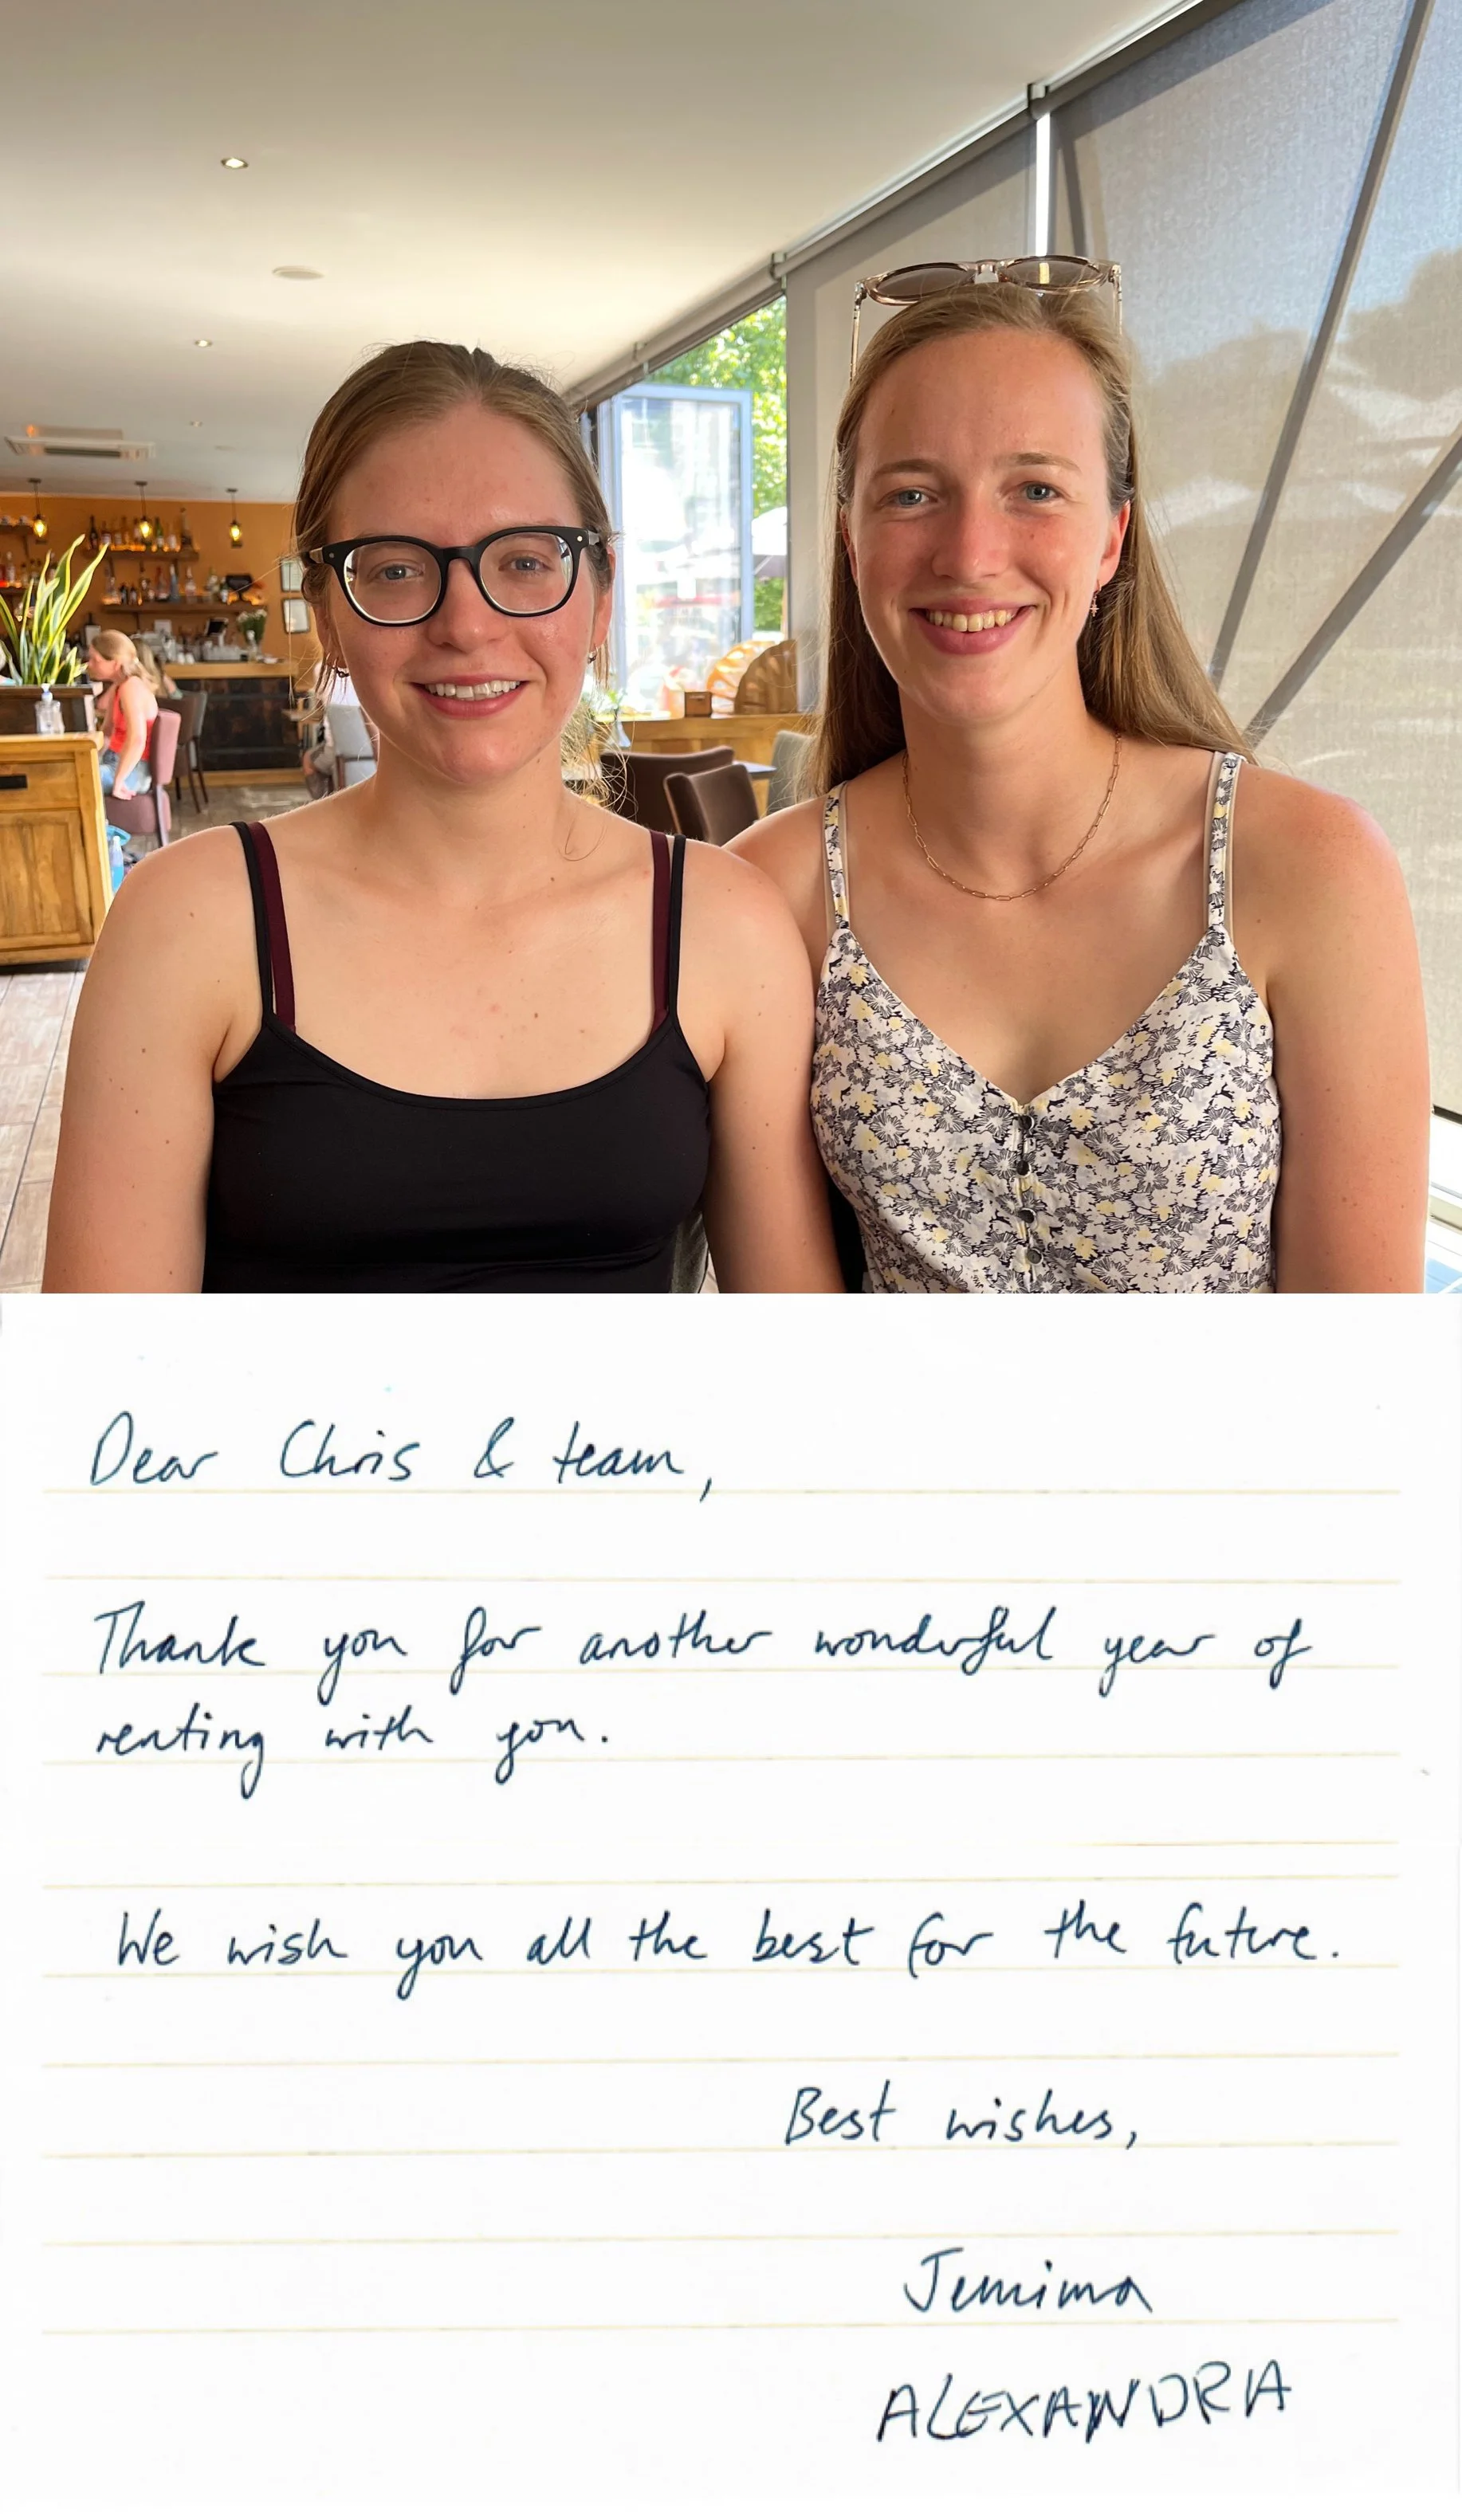 Dear Chris & team,
Thank you for another wonderful year of
renting with you.
We wish you all the best for the future.
Best wishes,
Jemima
ALEXANDRA